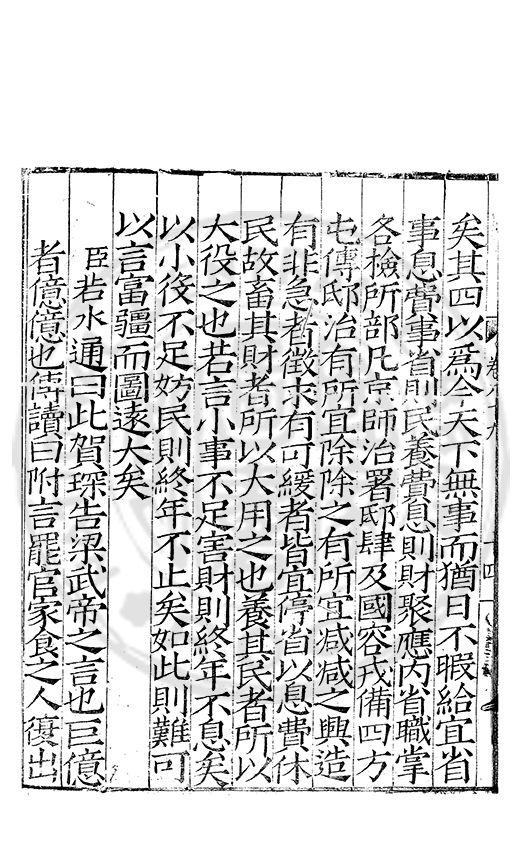 矣其四以爲今天下無事而猶日不暇給宜省
事息費事省則民養費息則財聚應內省職掌
各檢所部凡京師治署邸肆及國容戎備四方
屯傳邸治有所宜除除之有所宜减减之興造
有非急者徵求有可緩者皆宜停省以息費休
民故畜其財者所以大用之也養其民者所以
大役之也若言小事不足害財則終年不息矣
以小役不足妨民則終年不止矣如此則難可
以言富疆而圖遠大矣
臣若水通曰此賀琛告梁武帝之言也臣億
者億億也傳讀曰附言罷官家食之人復出
卷八十九
十四